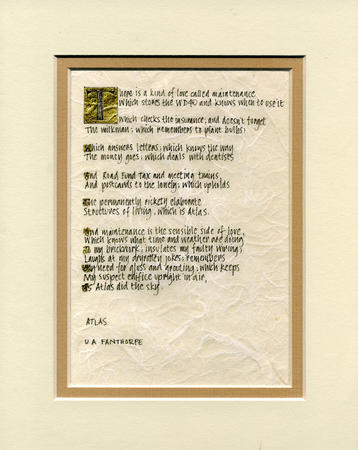 There is a kind of love called maintenance
Which stores the WD40 and knows when to use it
Which checks the insurance, and doesn't forget
The milkman; which remembers to plant bulbs;
Which answers letters; which knows the way
The money goes; which deals with dentists
And Road Fund Tax and meeting trains,
And postcards to the lonely; which upholds
The permanently rickety elaborate
Structures of living, which is Atlas.
And maintenance is the sensible side of love,
Which knows what time and weather are doing
To my brickwork; insulates my faulty wiring;
Laughs at my dryrotten jokes; remembers
My need for gloss and grouting; which keeps
My suspect edifice upright in air,
As Atlas did the sky.
ATLAS
U A FANTHORPE